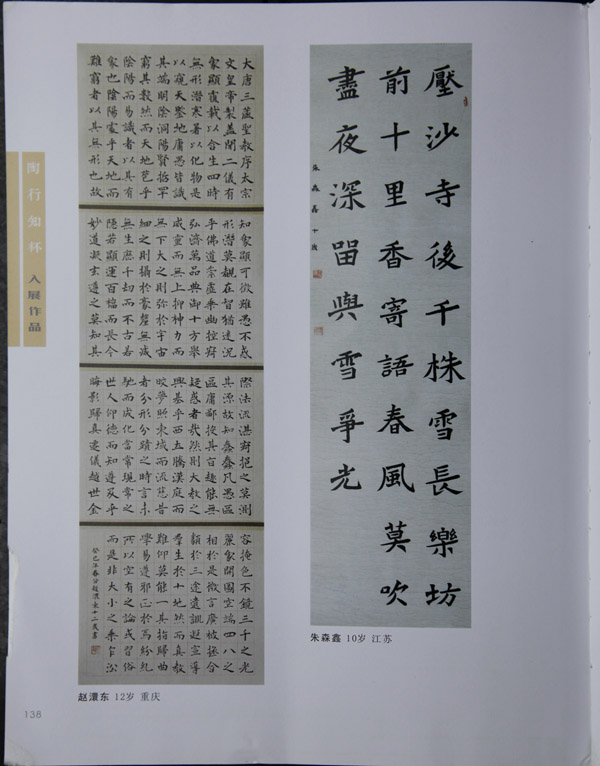 壓沙寺後千株雪長樂坊
前十里香寄語春風莫吹
盡夜深留與雪爭光
朱森鑫十歲
朱森鑫 10岁 江苏
大唐三藏聖教序太宗
文皇帝製蓋聞二儀有
象顯覆載以含生四時
無形潛寒暑以化物是
以窺天鑒地庸愚皆識
其端明陰洞陽賢哲罕
窮其數然而天地苞乎
陰陽而易識者以其有
象也陰陽處乎天地而
難窮者以其無形也故
知象顯可徵雖愚不惑
形潛莫覩在智猶迷況
乎佛道崇虛乘幽控寂
弘濟萬品典御十方舉
威靈而無上抑神力而
無下大之則彌於宇宙
細之則攝於毫釐無滅
無生歷千劫而不古若
隱若顯運百福而長今
妙道凝玄遵之莫知其
際法流湛寂挹之莫測
其源故知蠢蠢凡愚區
區庸鄙投其旨趣能無
疑惑者哉然則大教之
興基乎西土騰漢庭而
皎夢照東域而流慈昔
者分形分蹟之時言未
馳而成化當常現常之
世人仰德而知遵及乎
晦影歸真遷儀越世金
容掩色不鏡三千之光
麗象開圖空端四八之
相於是微言廣被拯含
類於三途遺訓遐宣導
群生於十地然而真教
難仰莫能一其指歸曲
學易遵邪正於焉紛糾
所以空有之論或習俗
而是非大小之乘乍沿
癸巳年春分趙澴東十二歲書
赵澴东 12岁 重庆
陶行知杯 入展作品
138